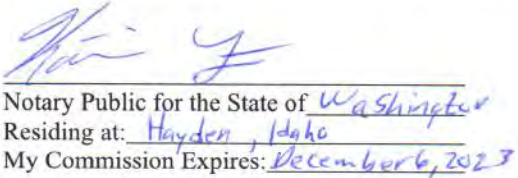 Notary Public for the State of Washington
Residing at: Hayden, Idaho
My Commission Expires: December 6, 2023